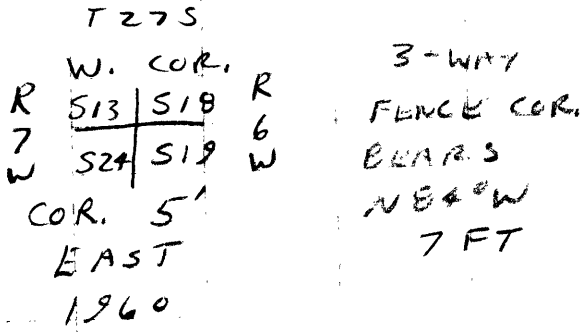 T 27 S
W. COR.
R S13 S18 R
7 6
W S24 S19 W
COR. 5'
EAST
1960
3-WAY
FENCE COR.
BEARS
N84°W
7 FT